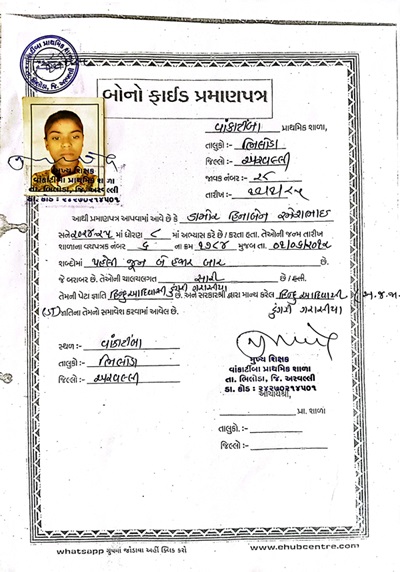 વાંકાટીંબા પ્રાથમિક શાળા
બોનો ફાઈડ પ્રમાણપત્ર
વાંકાટીંબા પ્રાથમિક શાળા,
તાલુકો:- ભિલોડા
જિલ્લો:- અરવલ્લી
જાવક નંબર:- ૨૮
તારીખ:-
મુખ્ય શિક્ષક
વાંકાટીંબા પ્રાથમિક શાળા
તા. ભિલોડા, જિ. અરવલ્લી
ડા. કોડ : ૨૪૨૭૦૨૧૪૫૦૧
આથી પ્રમાણપત્ર આપવામાં આવે છે કે ડામોર હિનાબેન રમેશભાઇ
સને ૨૦૨૪-૨૫ માં ધોરણ ૮ માં અભ્યાસ કરે છે / કરતા હતા. તેઓની જન્મ તારીખ
શાળાના વયપત્રક નંબર ૬ ના ક્રમ ૧૧૯૮૪ મુજબ તા. ૦૧/૦૬/૨૦૧૨
શબ્દોમાં પહેલી જૂન બે હજાર બાર છે.
જે બરાબર છે. તેઓની ચાલચલગત સારી છે / હતી.
તેમની પેટા જ્ઞાતિ હિન્દુ આદિવાસી ડુંગરી ગરાસીયા છે. અને સરકારશ્રી દ્વારા માન્ય કરેલ હિન્દુ આદિવાસી ડુંગરી ગરાસીયા અ.જ.જા
જ્ઞાતિના તેમનો સમાવેશ કરવામાં આવેલ છે.
સ્થળ :- વાંકાટીંબા
તાલુકો:- ભિલોડા
જિલ્લો:- અરવલ્લી
મુખ્ય શિક્ષક
વાંકાટીંબા પ્રાથમિક શાળા
તા. ભિલોડા, જિ. અરવલ્લી
ડા. કોડ : ૨૪૨૭૦૨૧૪૫૦૧
આચાર્યશ્રી,
પ્રા. શાળા
તાલુકો. :-
જિલ્લો :-
whatsapp ગ્રુપમાં જોડાવા અહીં ક્લિક કરો
www.ehubcentre.com